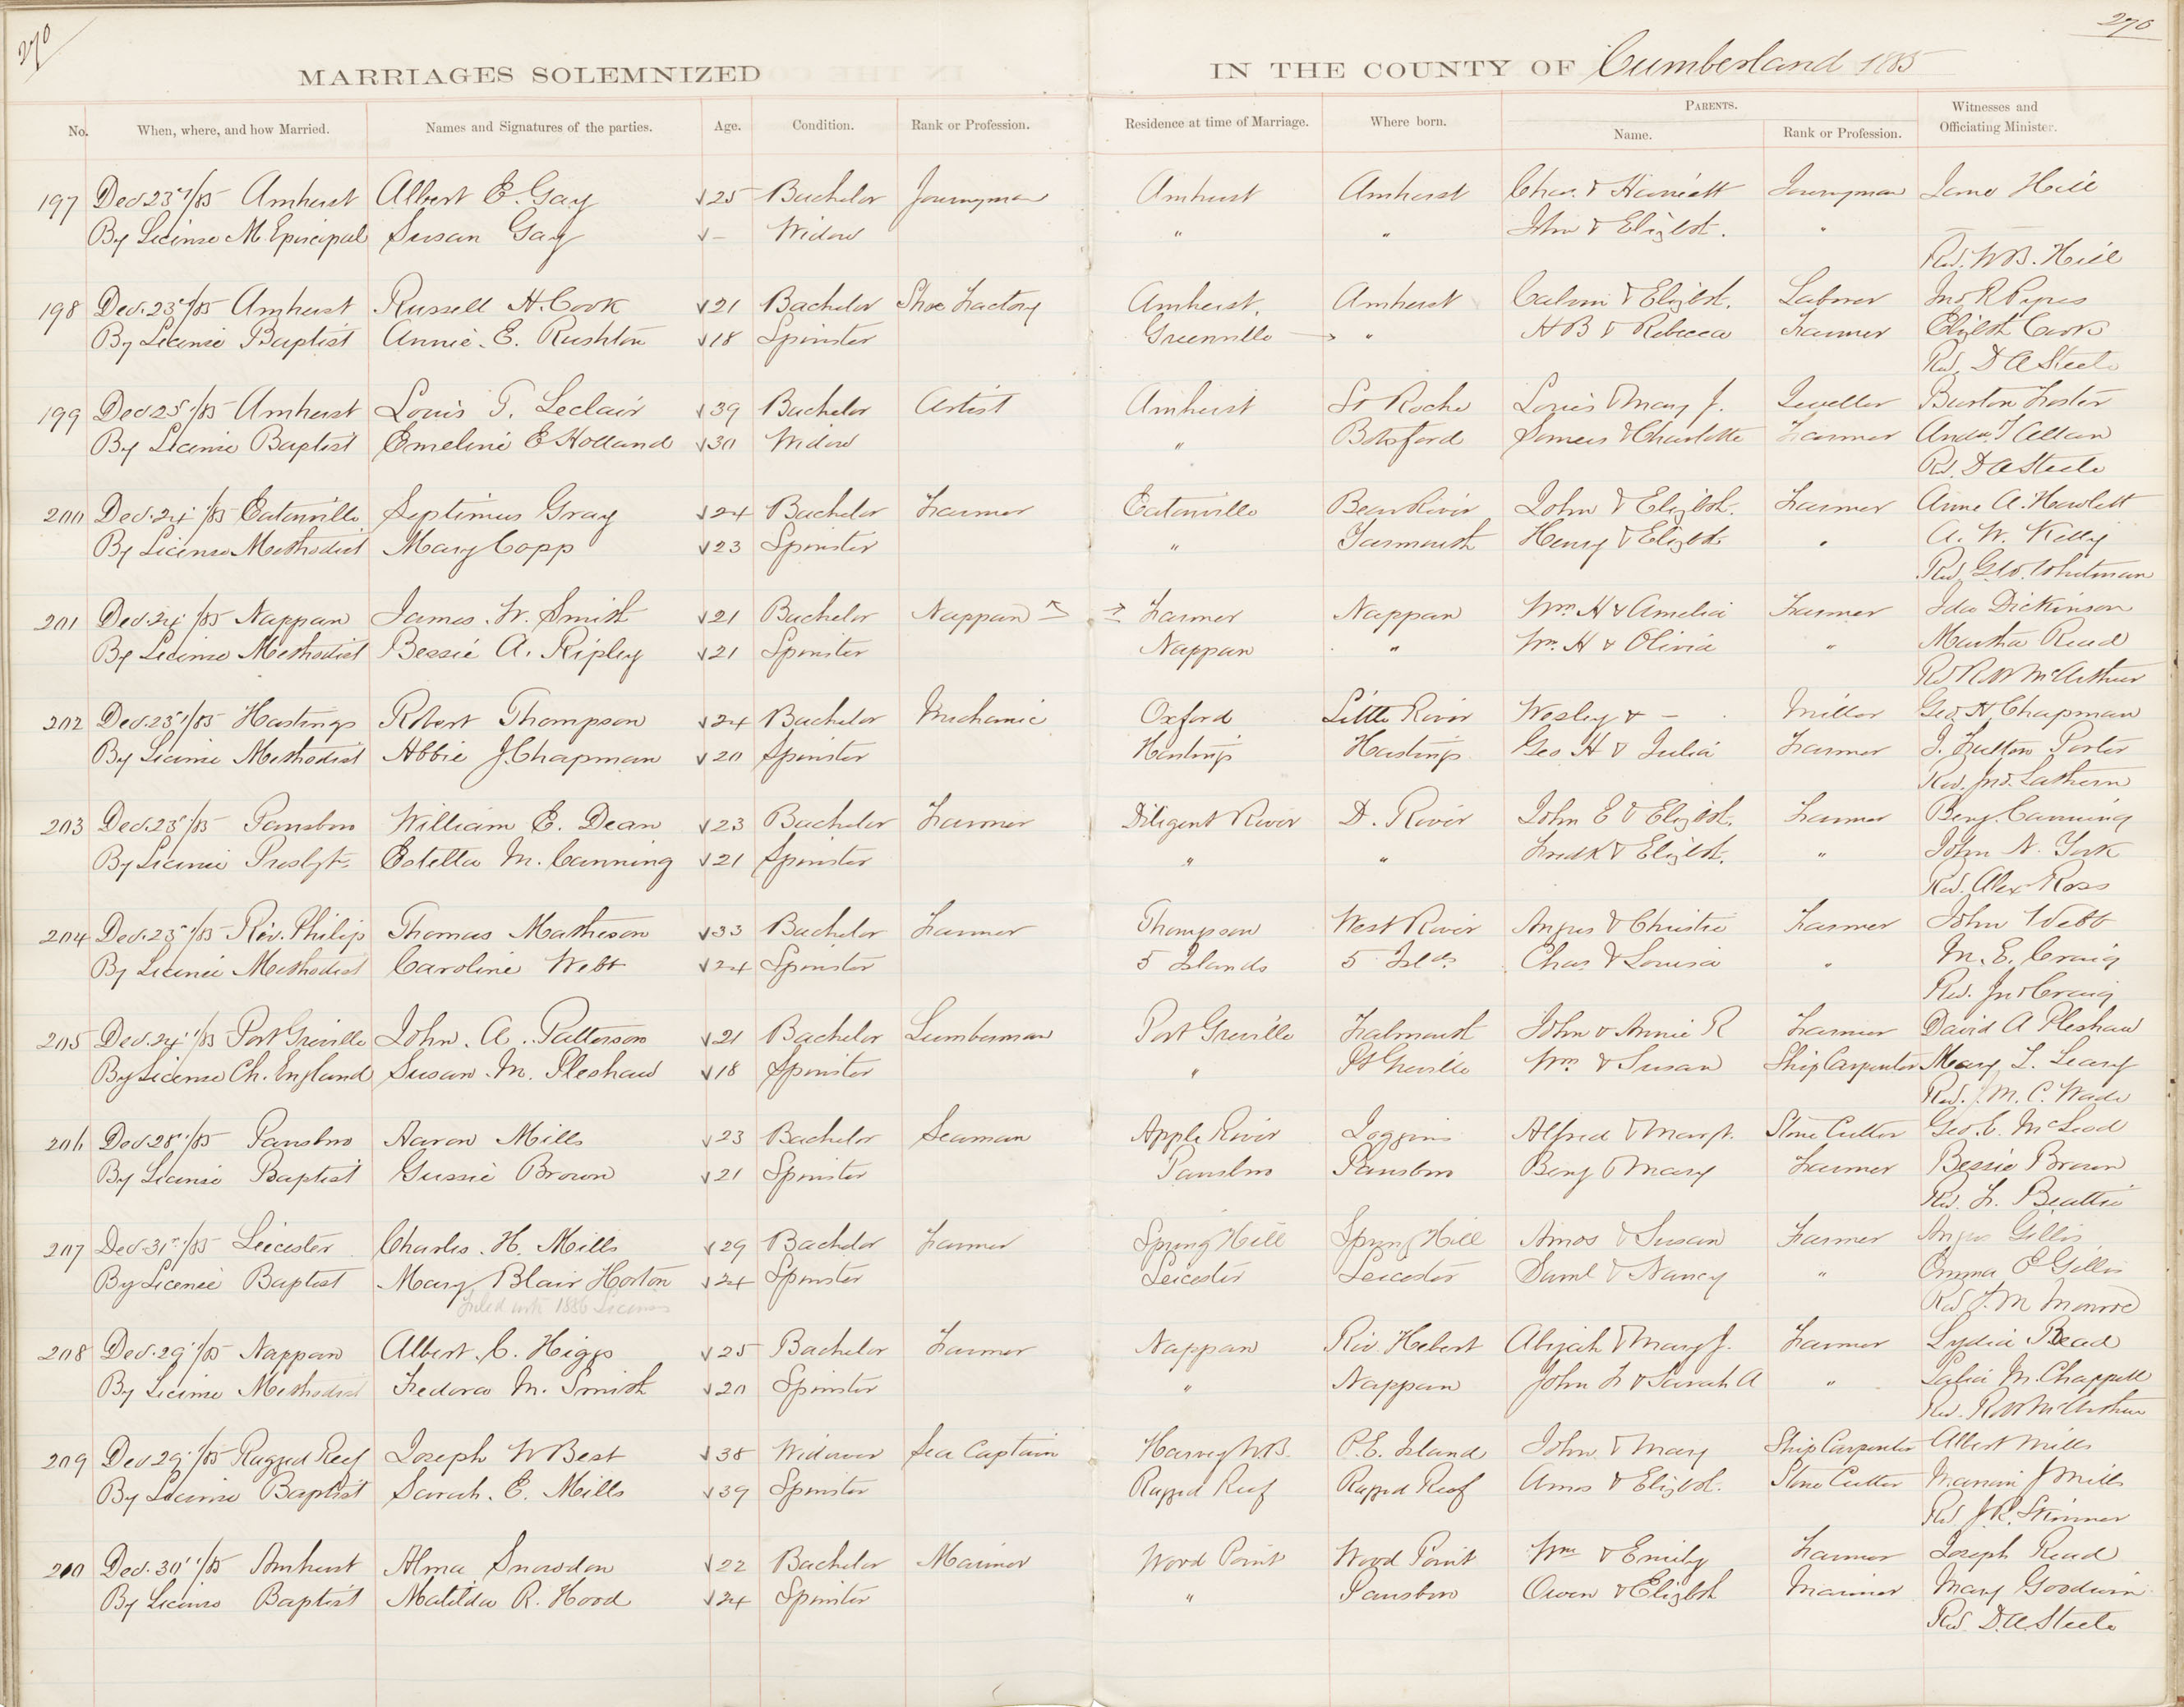 270
270
MARRIAGES SOLEMNIZED IN THE COUNTY OF Cumberland 1885
No. When, where, and how Married. Names and Signatures of the parties. Age. Condition. Rank or Profession. Residence at time of Marriage. Where born. PARENTS. Name. Rank or Profession. Witnesses and Officiating Minister.
197 Dec 23rd/85 Amherst Albert E. Gay √25 Bachelor Journyman Amherst Amherst Chas. & Harriett Journyman Hill
By License M. Episcipal Susan Gay √– Widow " " John & Elizbt. "
Rev. W B. Hill
198 Dec. 23rd/85 Amherst Russell H. Cook √21 Bachelor Shoe Factory Amherst, Amherst Calvin & Elizbt. Laborer Jno R Pipes
By License Baptist Annie. E. Rushton √18 Spinster Greenville → " H B & Rebecca Farmer Elizbth Cook
Rev. D A Steele
199 Dec 25/85 Amherst Louis T. Leclair √39 Bachelor Artist Amherst St Roche Louis & Mary J. Jeweller Burton Foster
By License Baptist Emeline E Holland √30 Widow " Botsford Somers & Charlotte Farmer Andw T Allan
Rev. D A Steele
200 Dec. 24/85 Eatonville Septimus Gray √24 Bachelor Farmer Eatonville Bear River John & Elizbth. Farmer Anne A. Hewlett
By License Methodist Mary Copp √23 Spinster " Yarmouth Henry & Elizbt " A. W. Kelly
Rev. Geo. Whitman
201 Dec. 24/85 Nappan James. W. Smith √21 Bachelor Nappan Farmer Nappan Wm H & Amelia Farmer Ida Dickinson
By License Methodist Bessie A. Ripley √21 Spinster Nappan " Wm. H & Olivia " Martha Read
Rev R W McArthur
202 Dec. 25/85 Hastings Robert Thompson √24 Bachelor Mechanic Oxford Little River Wesley & – Miller Geo. H Chapman
By License Methodist Abbie J. Chapman √20 Spinster Hastings Hastings Geo H & Julia Farmer J. Fulton Porter
Rev. Jno. Lathern
203 Dec. 25/85 Parrsboro William E. Dean √23 Bachelor Farmer Diligent River D. River John E & Elizbt. Farmer Benj. Canning
By License Presbyt. Estella M. Canning √21 Spinster " " Fredk & Elizbt. " John N. York
Rev. Alex Ross
204 Dec. 25/85 Riv. Philip Thomas Matheson √33 Bachelor Farmer Thompson West River Angus & Christie Farmer John Webb
By License Methodist Caroline Webb √24 Spinster 5 Islands 5 Islds. Chas & Louisa " M. E. Craig
Rev. Jno Craig
205 Dec. 24/85 Port Greville John. A. Patterson √21 Bachelor Lumberman Port Greville Falmouth John & Annie R Farmer David A Pleshaw
By License Ch. England Susan. M. Pleshaw √18 Spinster " Pt Greville Wm & Susan Ship Carpenter Mary L. Leary
Rev. M. C. Wade
206 Dec 28/85 Parrsboro Aaron Mills √23 Bachelor Seaman Apple River Joggins Alfred & Margt. Stone Cutter Geo. C. McLeod
By License Baptist Gussie Brown √21 Spinster Parrsboro Parrsboro Benj & Mary Farmer Bessie Brown
Rev. F. Beattie
207 Dec. 31st/85 Leicester Charles. H. Mills √29 Bachelor Farmer Spring Hill Spring Hill Amos & Susan Farmer Angus Gillis
By License Baptist Mary Blair Horton √24 Spinster Leicester Leicester Saml & Nancy " Emma E Gillis
Filed with 1886 Licenses Rev J. M Monroe
208 Dec. 29/85 Nappan Albert. C. Higgs √25 Bachelor Farmer Nappan Riv. Hebert Abijah & Mary J. Farmer Lydia Read
By License Methodist Fedora M. Smith √20 Spinster " Nappan John F & Sarah A " Salia M. Chappell
Rev. R W McArthur
209 Dec 29/85 Ragged Reef Joseph W Best √38 Widower Sea Captain Harvey N.B. P.E. Island John & Mary Ship Carpenter Albert Mills
By License Baptist Sarah. E. Mills √39 Spinster Ragged Reef Ragged Reef Amos & Elizbt. Stone Cutter J Mills
Rev. J. R. Skinner
210 Dec. 30/85 Amherst Alma Snowdon √22 Bachelor Mariner Wood Point Wood Point Wm & Emily Farmer Joseph Read
By License Baptist Matilda R. Hood √24 Spinster " Parrsboro Owen & Elizbth Mariner Mary Goodwin
Rev. D. A. Steele